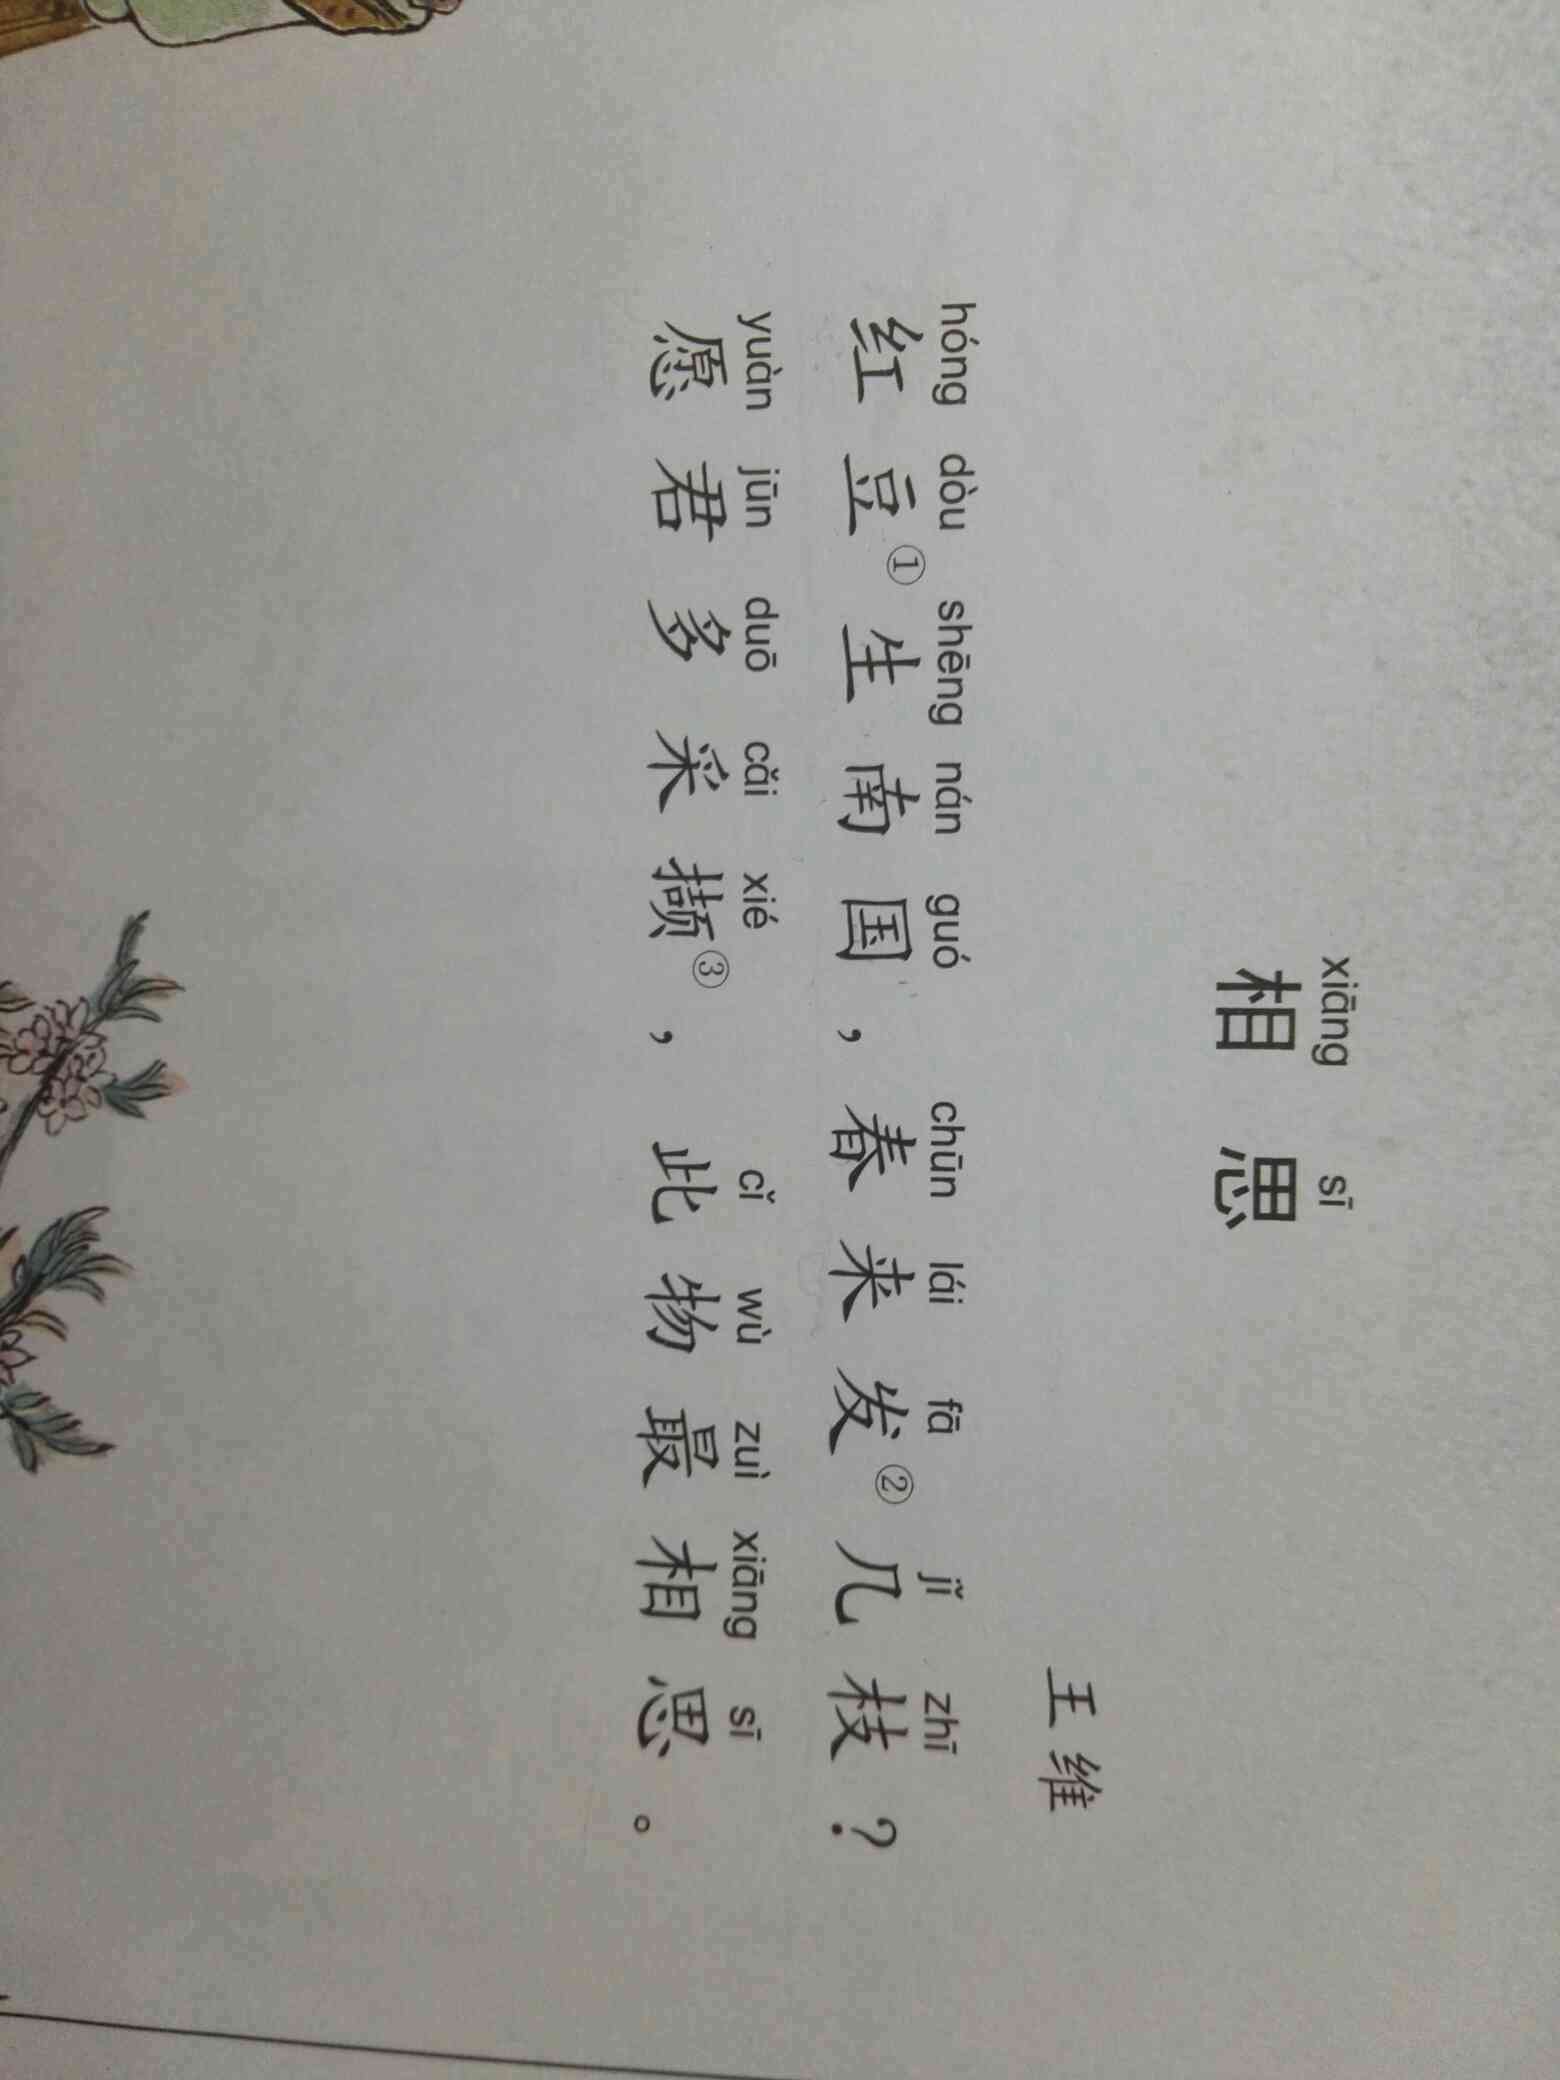 xiāng sī
相思
王维
hóng dòu shēng nán guó chūn lái fā jǐ zhī
红豆①生南国，春来发②几枝？
yuàn jūn duō cǎi xié cǐ wù zuì xiāng sī
愿君多采撷③，此物最相思。